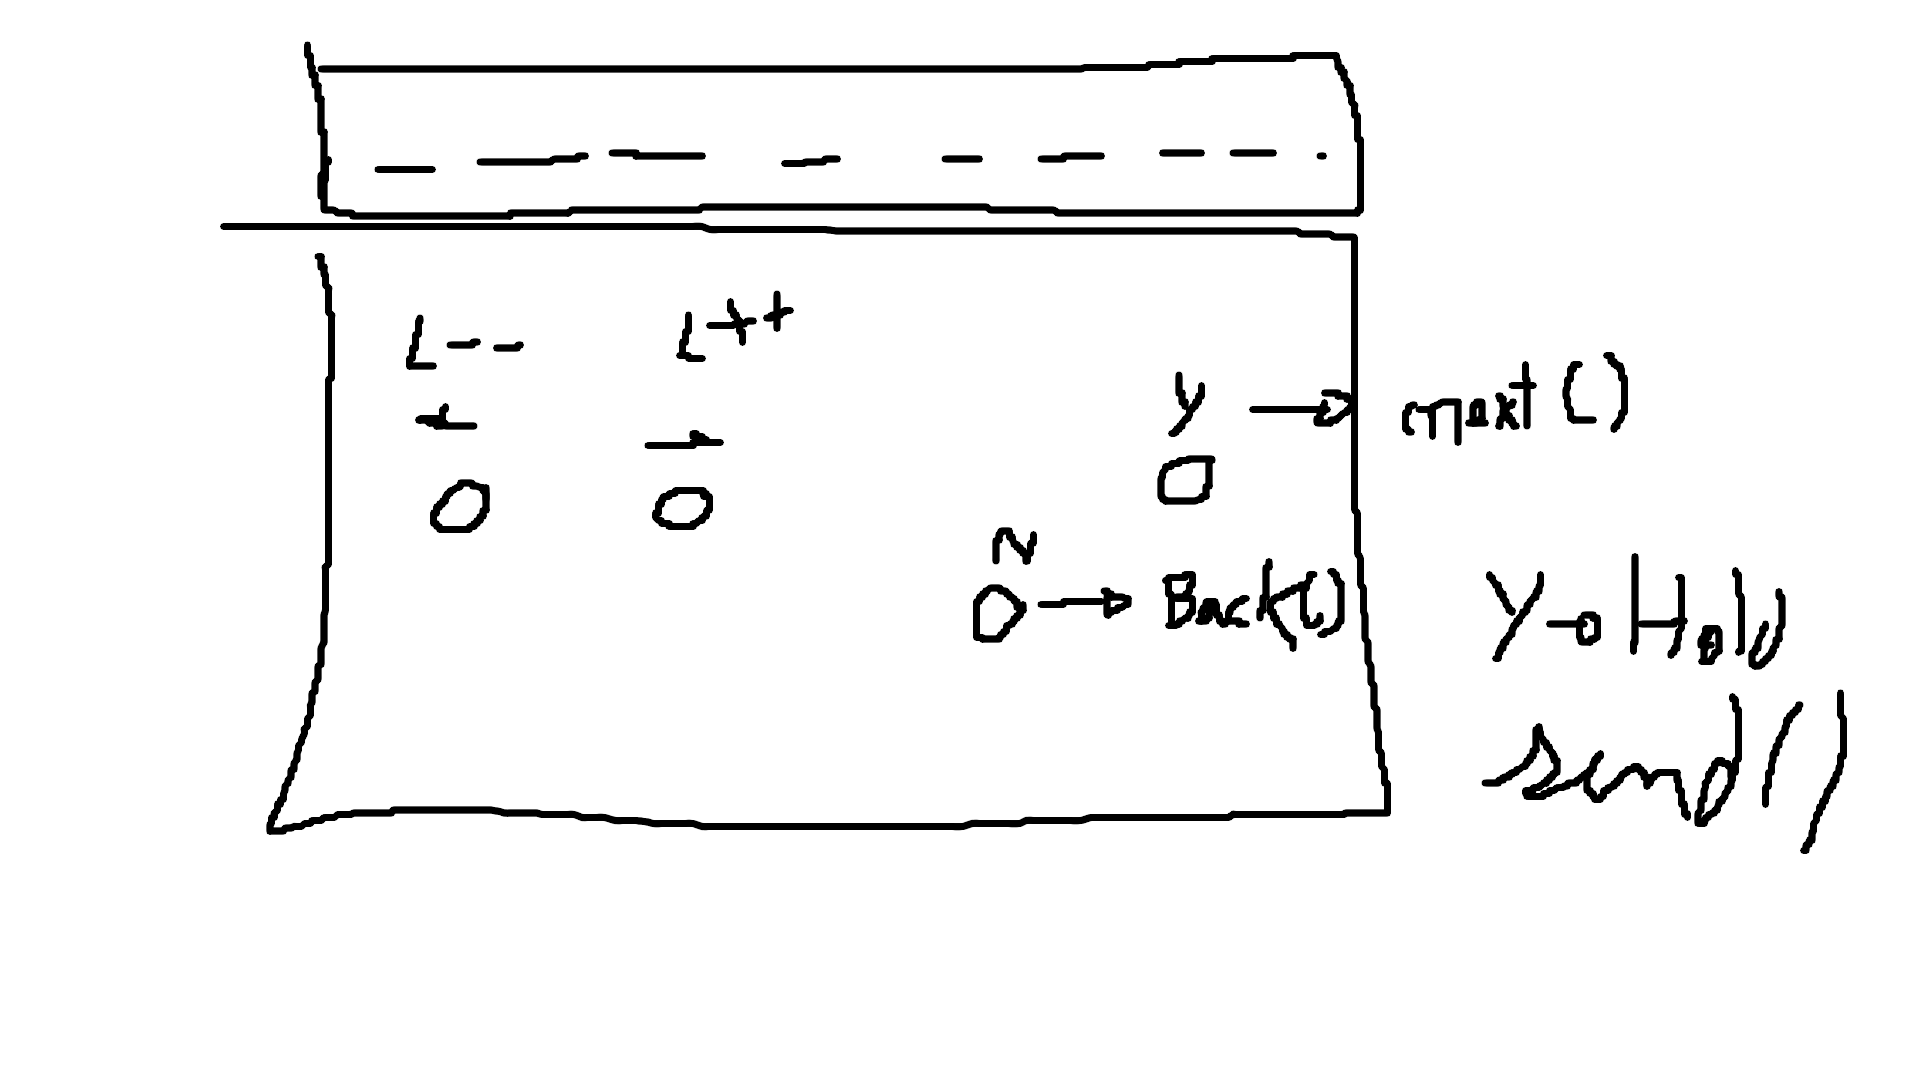 L-- L++
← →
Y → next()
N → Back()
Y → Hold
send()